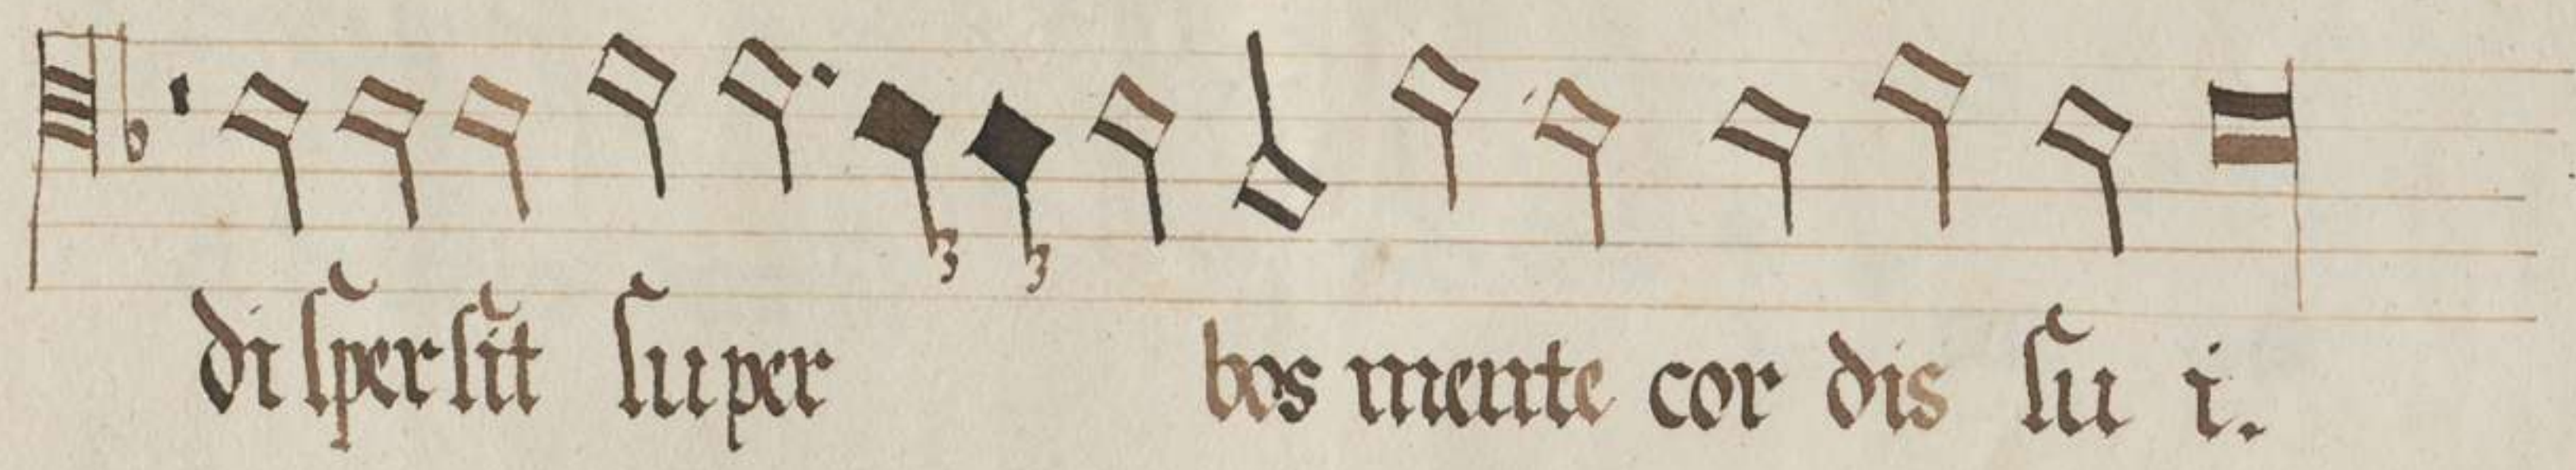 di ſperſit ſu per bos mente cor dis ſu i.